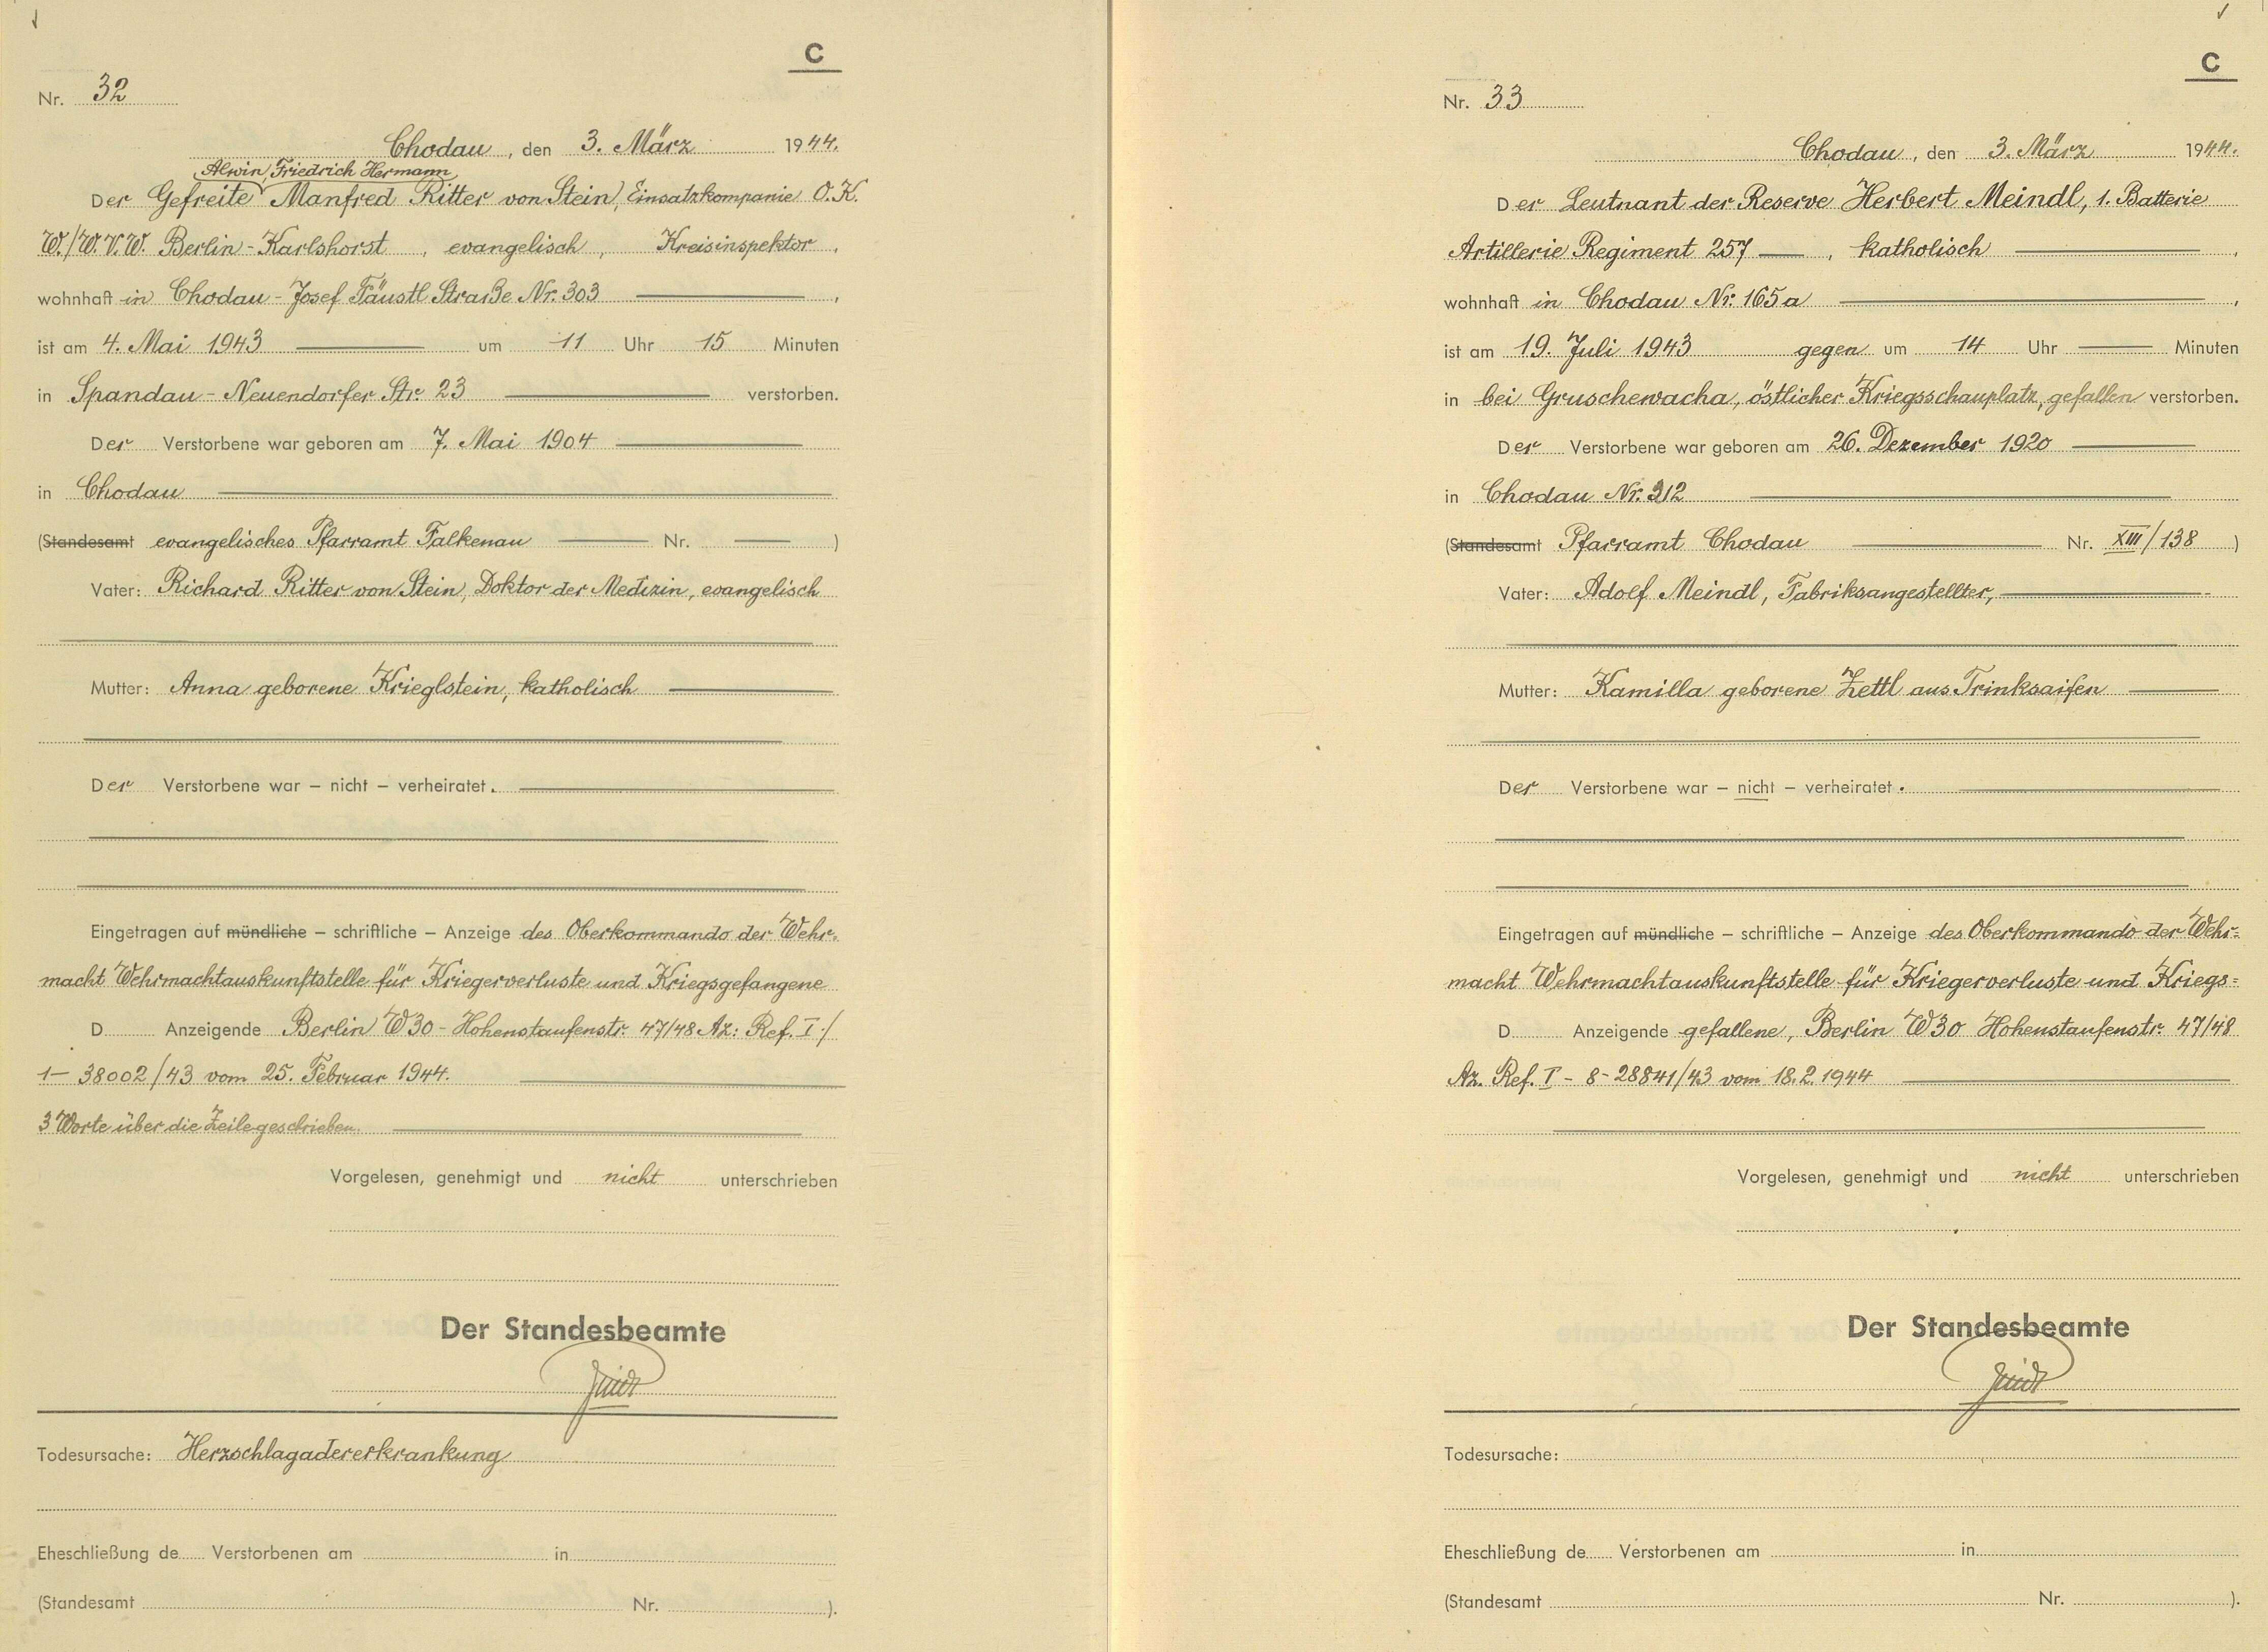 C
Nr. 32
Chodau, den 3. März 1944.
Alwin, Friedrich Hermann
Der Gefreite Manfred Ritter von Stein, Einsatzkompanie O.K.
W./W.V.W. Berlin-Karlshorst, evangelisch, Kreisinspektor,
wohnhaft in Chodau - Josef Fäustl Straße Nr. 303,
ist am 4. Mai 1943 um 11 Uhr 15 Minuten
in Spandau - Neuendorfer Str. 23 verstorben.
Der Verstorbene war geboren am 7. Mai 1904
in Chodau
(Standesamt evangelisches Pfarramt Falkenau Nr. )
Vater: Richard Ritter von Stein, Doktor der Medizin, evangelisch
Mutter: Anna geborene Krieglstein, katholisch
Der Verstorbene war – nicht – verheiratet.
Eingetragen auf mündliche – schriftliche – Anzeige des Oberkommando der Wehr-
macht Wehrmachtauskunftstelle für Kriegerverluste und Kriegsgefangene
D Anzeigende Berlin W30 - Hohenstaufenstr. 47/48 Az: Ref. I /
1– 38002/43 vom 25. Februar 1944.
3 Worte über die Zeile geschrieben.
Vorgelesen, genehmigt und nicht unterschrieben
Der Standesbeamte
Todesursache: Herzschlagadererkrankung
Eheschließung de Verstorbenen am in
(Standesamt Nr. ).
C
Nr. 33
Chodau, den 3. März 1944.
Der Leutnant der Reserve Herbert Meindl, 1. Batterie
Artillerie Regiment 257, katholisch,
wohnhaft in Chodau Nr. 165a,
ist am 19. Juli 1943 gegen um 14 Uhr Minuten
in bei Gruschewacha, östlicher Kriegsschauplatz, gefallen verstorben.
Der Verstorbene war geboren am 26. Dezember 1920
in Chodau Nr. 312
(Standesamt Pfarramt Chodau Nr. XIII/138 )
Vater: Adolf Meindl, Fabriksangestellter,
Mutter: Kamilla geborene Zettl aus Trinksaifen
Der Verstorbene war – nicht – verheiratet.
Eingetragen auf mündliche – schriftliche – Anzeige des Oberkommando der Wehr=
macht Wehrmachtauskunftstelle für Kriegerverluste und Kriegs=
D Anzeigende gefallene, Berlin W30 Hohenstaufenstr. 47/48
Az. Ref. I - 8 - 28841/43 vom 18.2.1944
Vorgelesen, genehmigt und nicht unterschrieben
Der Standesbeamte
Todesursache:
Eheschließung de Verstorbenen am in
(Standesamt Nr. ).